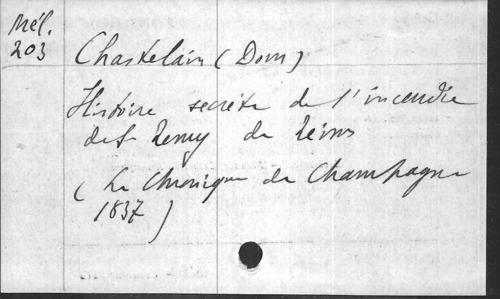 Mél.
203
Chastelain (Dom)
Histoire secrète de l'incendie
de St Remy de Reims
(La Chronique de Champagne
1837)